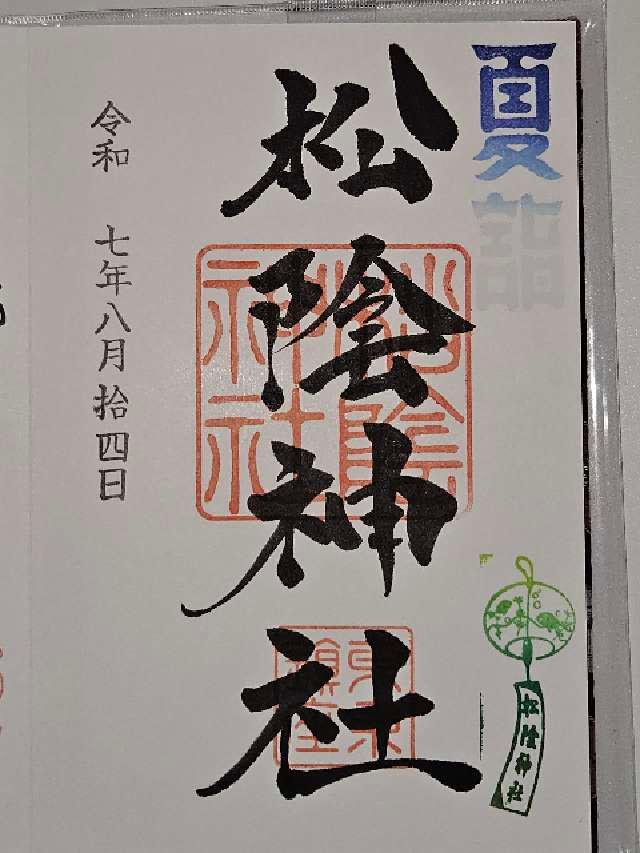 夏詣
松陰神社
松陰神社
松陰神社
令和 七年八月拾四日